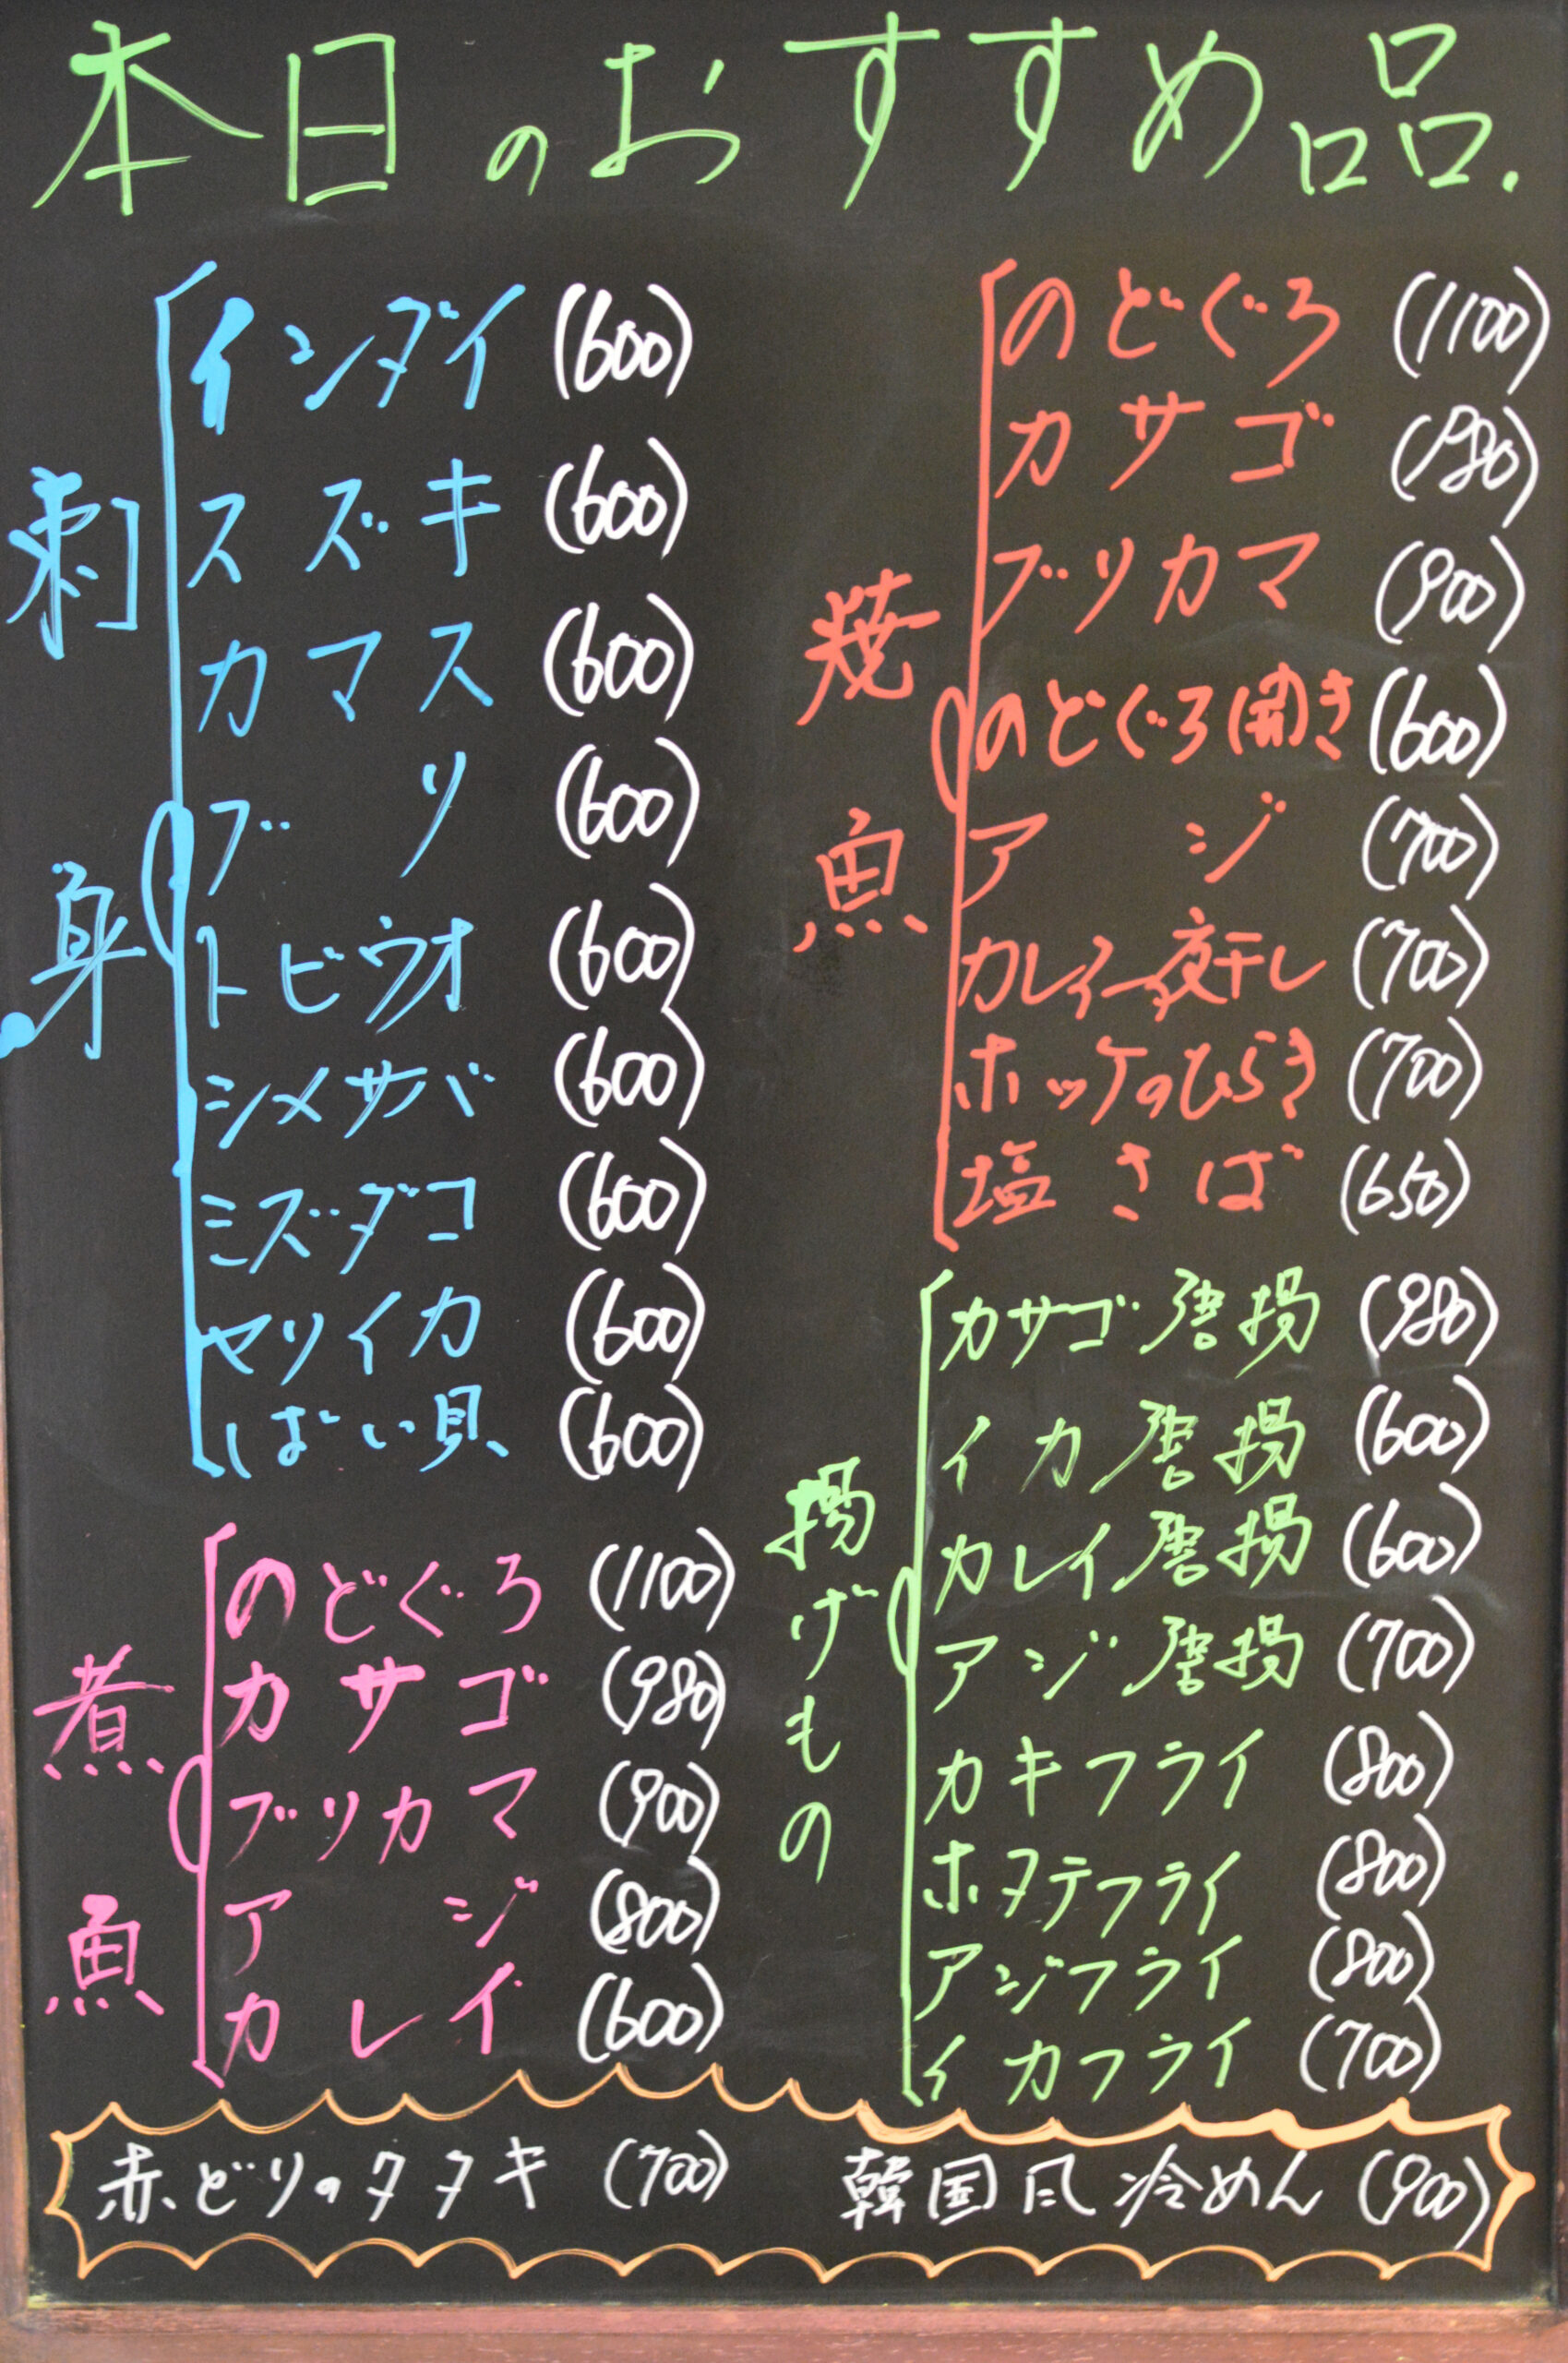 本日のおすすめ品.
刺身
インダイ (600)
スズキ (600)
カマス (600)
ブリ (600)
トビウオ (600)
シメサバ (600)
ミズダコ (600)
ヤリイカ (600)
ばい貝 (600)
煮魚
のどぐろ (1100)
カサゴ (980)
ブリカマ (900)
アジ (800)
カレイ (600)
焼魚
のどぐろ (1100)
カサゴ (980)
ブリカマ (900)
のどぐろ開き (600)
アジ (700)
カレイ一夜干し (700)
ホッケのひらき (700)
塩さば (650)
揚げもの
カサゴ唐揚 (980)
イカ唐揚 (600)
カレイ唐揚 (600)
アジ唐揚 (700)
カキフライ (800)
ホタテフライ (800)
アジフライ (800)
イカフライ (700)
赤どりのタタキ (700)
韓国風冷めん (900)